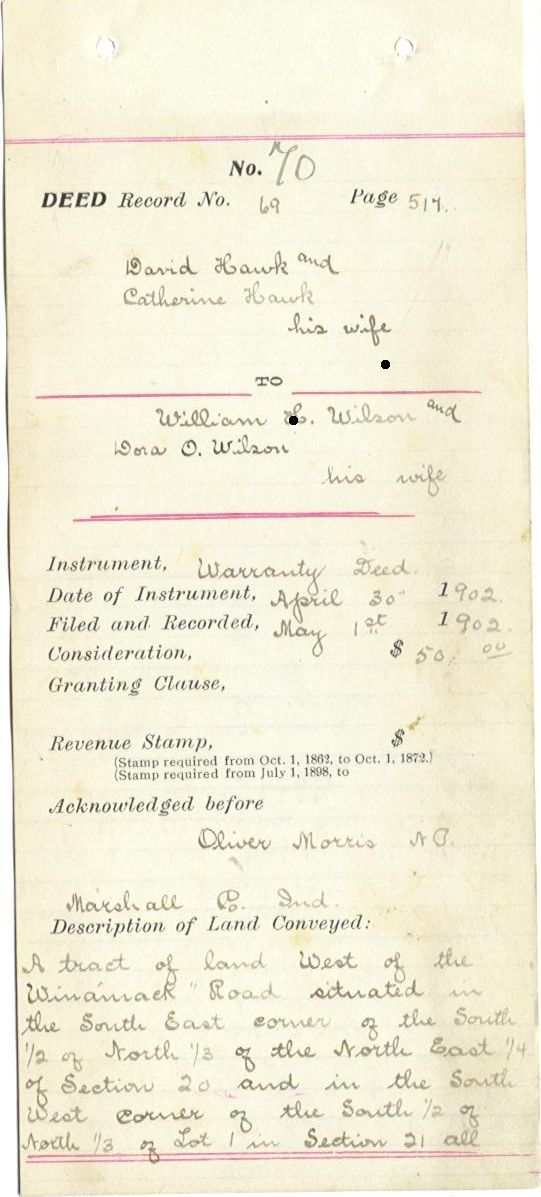 No. 70
DEED Record No. 69 Page 517.
David Hawk and
Catherine Hawk
his wife
TO
William H. Wilson and
Dora O. Wilson
his wife
Instrument, Warranty Deed.
Date of Instrument, April 30" 1902.
Filed and Recorded, May 1st 1902.
Consideration, $ 50. 00
Granting Clause,
Revenue Stamp, $
(Stamp required from Oct. 1, 1862, to Oct. 1, 1872.)
(Stamp required from July 1, 1898, to
Acknowledged before
Oliver Morris N.P.
Marshall Co. Ind.
Description of Land Conveyed:
A tract of land West of the
Winamack" Road situated in
the South East corner of the South
1/2 of North 1/3 of the North East 1/4
of Section 20 and in the South
West corner of the South 1/2 of
North 1/3 of Lot 1 in Section 21 all